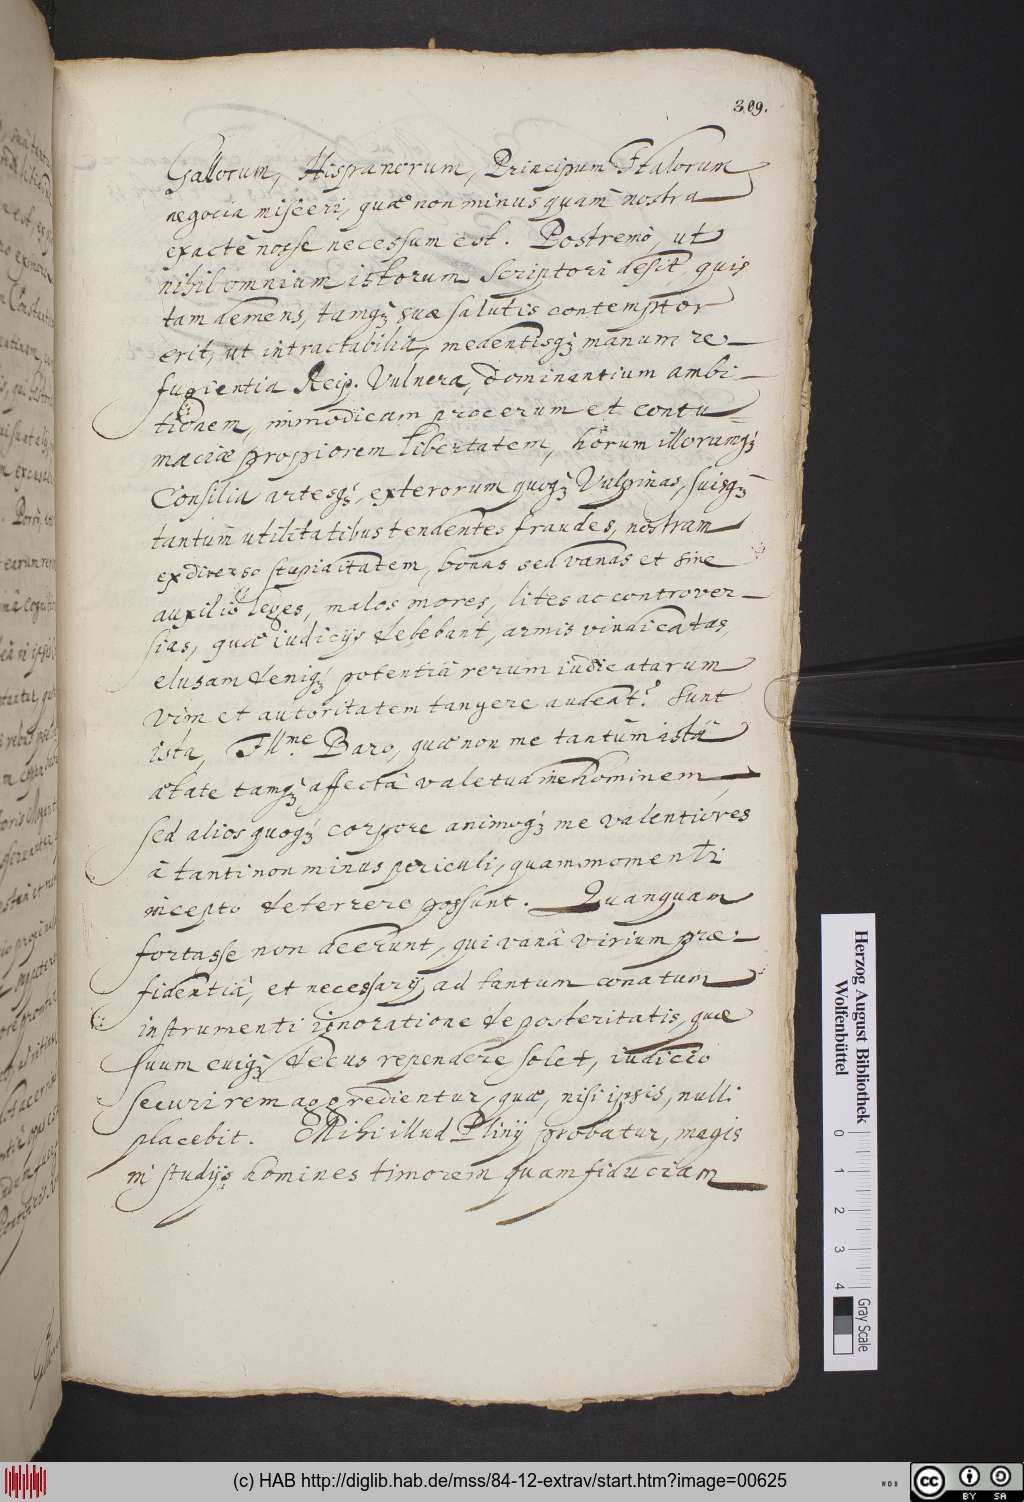 309.
Gallorum, Hispanorum, Principum Italorum
negocia misceri, quæ non minus quam nostra
exactè nosse necessum est. Postremò, ut
nihil omnium istorum Scriptori desit, quis
tam demens, tamq́; suæ salutis contemptor
erit, ut intractabilia, medentisq́; manum re-
fugientia Reip. Vulnera, dominantium ambi-
tionem, immodicam procerum et contu
maciæ propriorem libertatem, horum illorumq́;
Consilia artesq́;, exterorum quoq́; Vulpinas, suisq́;
tantum̀ utilitatibus tendentes fraudes, nostram
ex diverso stupiditatem, bonas sed vanas et sine
auxilio leges, malos mores, lites ac controver-
sias, quæ iudicijs debebant, armis vindicatas,
elusam deniq́; potentiâ rerum iudicatarum
vim et autoritatem tangere audeat? Sunt
ista, Ill.me Baro, quæ non me tantùm istâ
ætate tamq́; affectâ valetudine hominem
sed alios quoq́; corpore animoq́; me valentiores
à tanti non minus periculi, quam momenti
incepto deterrere possunt. Quanquam
fortasse non deerunt, qui vanâ virium præ-
fidentiâ, et necessarij ad tantum conatum
instrumenti ignoratione de posteritatis, quæ
suum cuiq́; decus rependere solet, iudicio
securi rem aggredientur, quæ, nisi ipsis, nulli
placebit. Mihi illud Plinij probatur, magis
in studijs homines timorem quam fiduciam
Herzog August Bibliothek
Wolfenbüttel
0 1 2 3 4
Gray Scale
(c) HAB http://diglib.hab.de/mss/84-12-extrav/start.htm?image=00625
cc BY SA